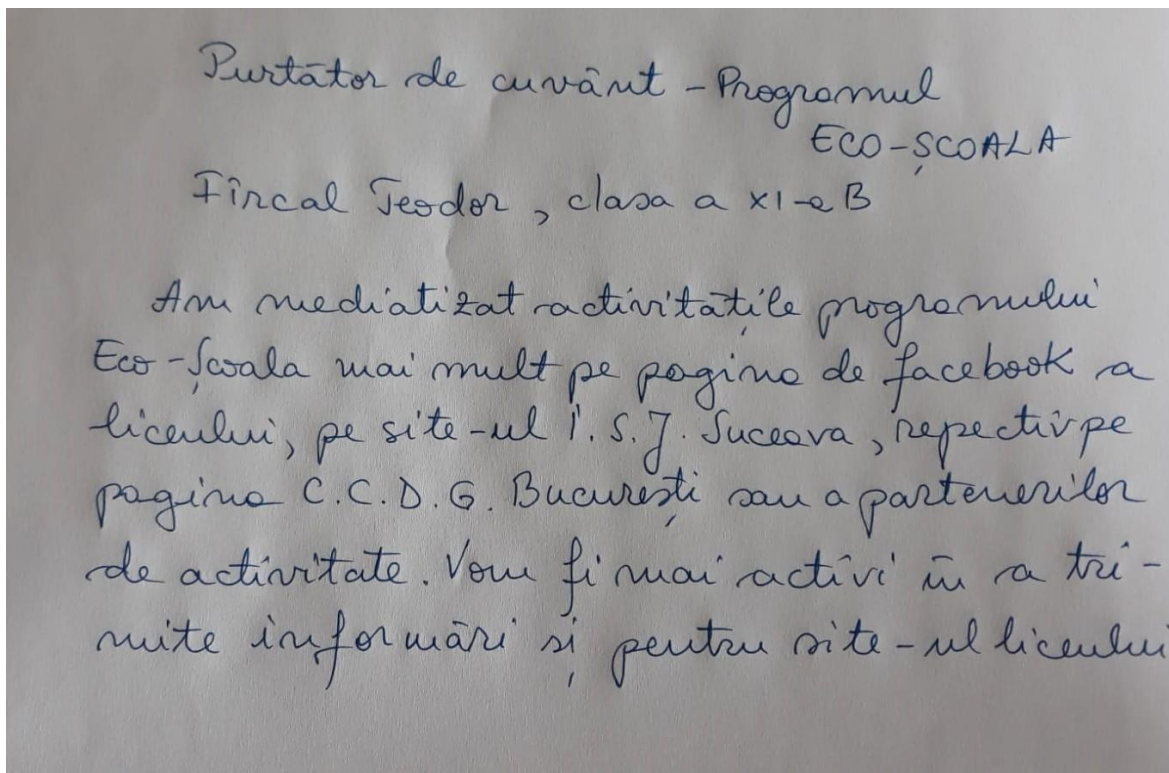 Purtător de cuvânt - Programul
ECO-ȘCOALA
Fîrcal Teodor, clasa a XI-a B
Am mediatizat activitățile programului
Eco-Școala mai mult pe pagina de facebook a
liceului, pe site-ul I.S.J. Suceava, repectiv pe
pagina C.C.D.G. București sau a partenerilor
de activitate. Vom fi mai activi în a tri-
mite informări și pentru site-ul liceului